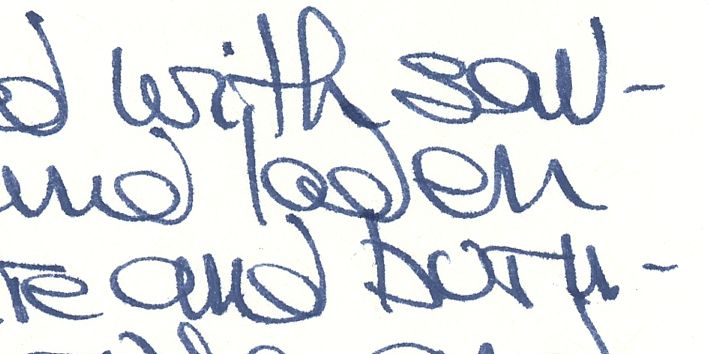 d with sav-
and laden
re and burn-